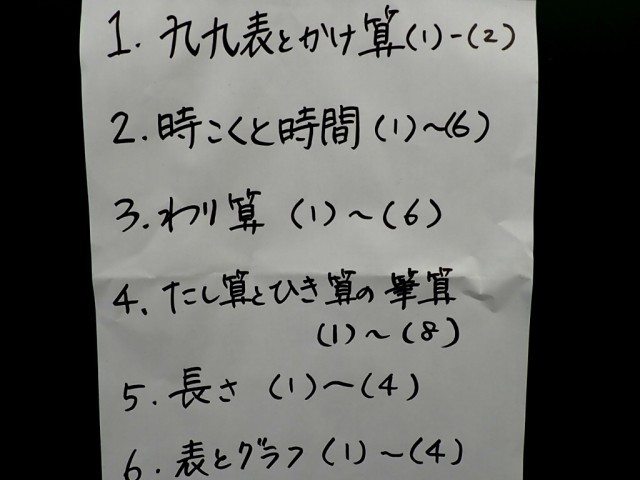 1. 九九表とかけ算(1)-(2)
2. 時こくと時間(1)~(6)
3. わり算(1)~(6)
4. たし算とひき算の筆算
(1)~(8)
5. 長さ(1)~(4)
6. 表とグラフ(1)~(4)